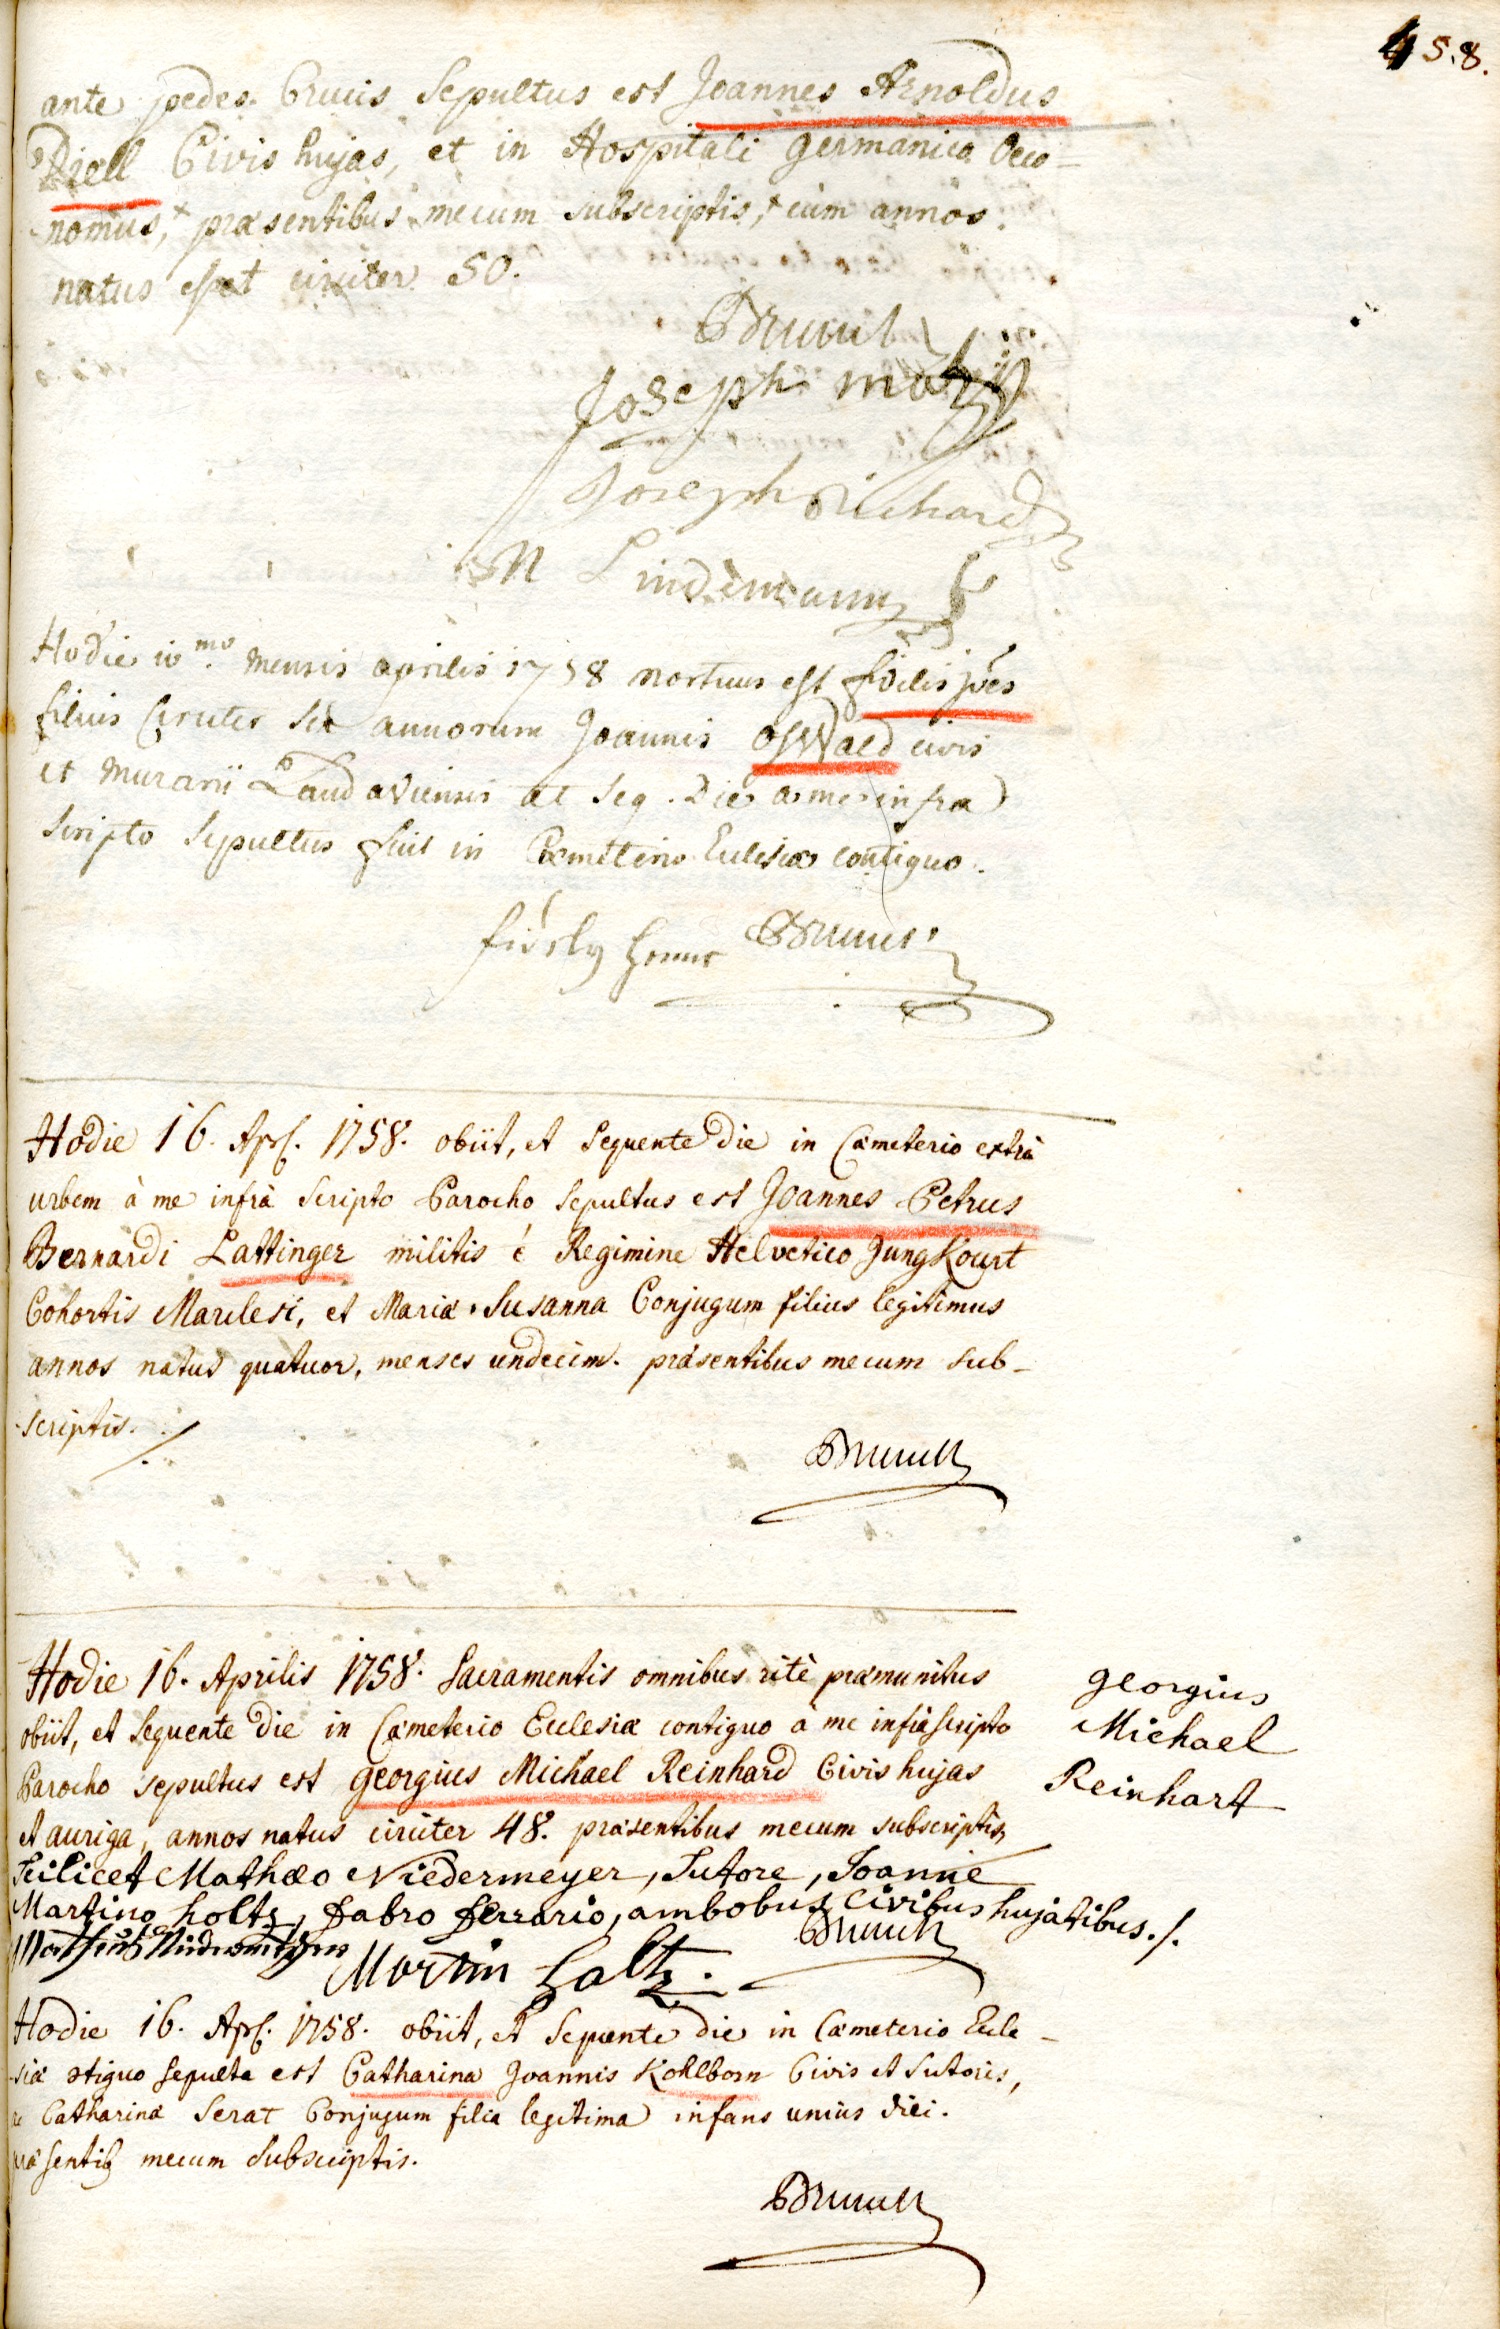 458.
ante pedes Crucis Sepultus est Joannes Arnoldus
Diell Civis hujas, et in Hospitali germanico Oeco-
nomus, præsentibus mecum subscriptis, cùm annos
natus esset circiter 50.
Joseph
Joseph Richard
N Lindemann
Hodie 10mo mensis aprilis 1758 mortuus est fidelis
filius Circiter sex annorum Joannis Oswald civis
et Murarii Landaviensis et seq. Die a me infra
scripto sepultus fuit in Cœmeterio Ecclesiæ contiguo.
Hodie 16. Apr. 1758. obiit, et sequente die in Cæmeterio extrà
urbem à me infrà scripto Parocho sepultus est Joannes Petrus
Bernardi Lattinger militis è Regimine Helvetico Jungkourt
Cohortis, et Mariæ Susanna Conjugum filius legitimus
annos natus quatuor, menses undecim. præsentibus mecum sub-
scriptis. ./.
Hodie 16. Aprilis 1758. Sacramentis omnibus ritè præmunitus
obiit, et sequente die in Cæmeterio Ecclesiæ contiguo a me infrà scripto
Parocho sepultus est georgius Michael Reinhard Civis hujas
et auriga, annos natus circiter 48. præsentibus mecum subscriptis,
georgius
Michael
Reinhart
scilicet Mathæo Niedermeyer, Sutore, Joanne
Martino holtz, fabro ferrario, ambobus Civibus hujatibus. ./.
Martin Holtz.
Hodie 16. Apr. 1758. obiit, et sequente die in Cæmeterio Eccle-
siæ contiguo sepulta est Catharina Joannis Kohlborn Civis et Sutoris,
Catharinæ Serat Conjugum filia legitima infans unius diei.
præsentib mecum subscriptis.